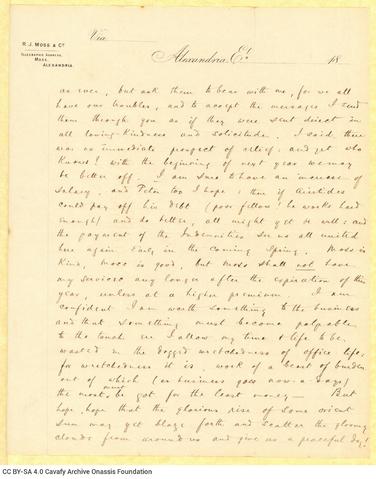 R. J. MOSS & Co.
TELEGRAPHIC ADDRESS,
MOSS,
ALEXANDRIA.
Via
Alexandria, Et.
18
as ever, but ask them to bear with me, for we all
have our troubles, and to accept the messages I send
them through you as if they were sent direct in
all loving-kindness and solicitude. I said there
was no immediate prospect of relief; and yet who
knows! with the beginning of next year we may
be better off. I am sure to have an increase of
salary, and Peter too I hope; then if Aristides
could pay off his debt (poor fellow! he works hard
enough) and do better, all might yet go well; and
the payment of the Indemnities see us all united
here again Early in the coming Spring. Moss is
Kind, Moss is good, but Moss shall not have
my services any longer after the expiration of this
year, unless at a higher premium. I am
confident I am worth something to the business
and that something must become palpable
to the touch ere I allow my time & life to be
wasted in the dogged wretchedness of office life,
for wretchedness it is, work of a beast of burden
out of which (as business goes now-a-days)
the most must be got for the least money — But
hope, hope that the glorious rise of some orient
Sun may yet blaze forth and scatter the gloomy
clouds from around us and give us a peaceful day!
CC BY-SA 4.0 Cavafy Archive Onassis Foundation